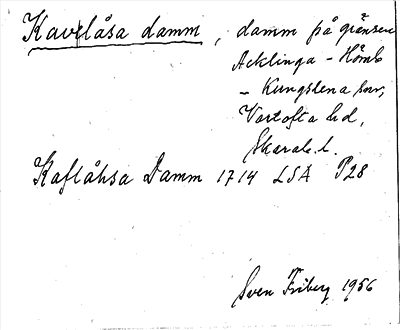 Kavelåsa damm, damm på gränsen
Acklinga - Hömb
- Kungslena snr,
Vartofta hd,
Skarab. l.
Kaflåhsa Damm 1714 LSA P28
Sven Friberg 1956